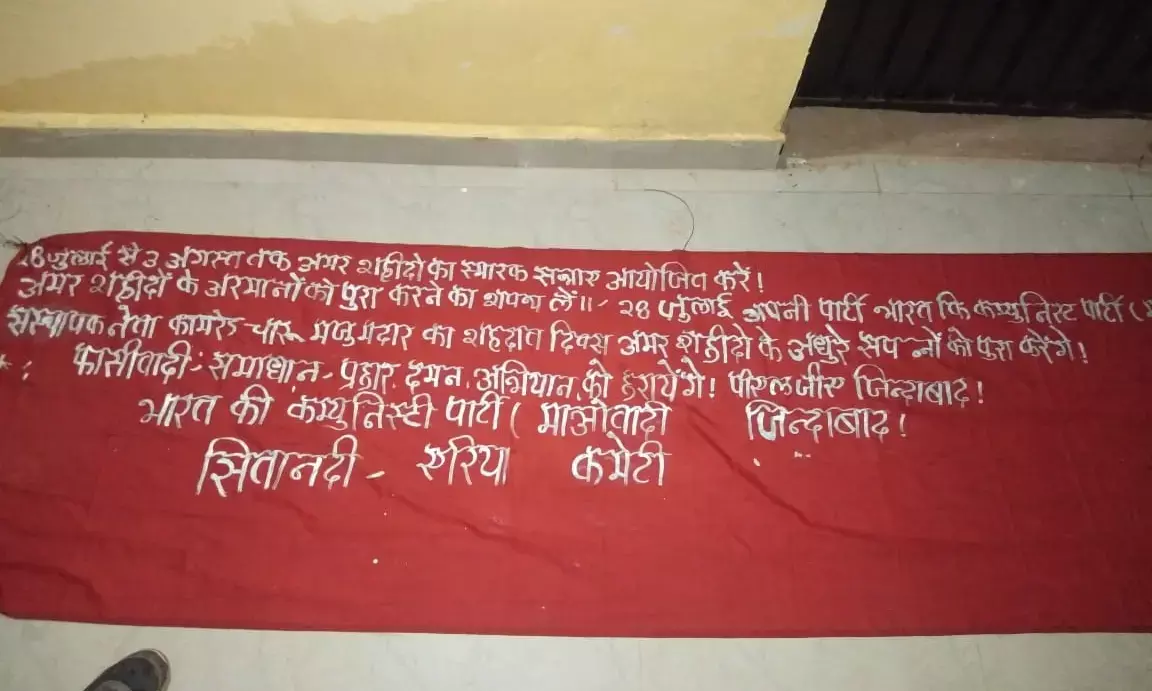 28 जुलाई से 3 अगस्त तक अमर शहीदो का स्मारक सप्ताह आयोजित करें!
अमर शहीदों के अरमानों को पुरा करने का शपथ लें॥ 28 जुलाई अपनी पार्टी भारत कि कम्युनिस्ट पार्टी (
संस्थापक नेता कामरेड चारू मजुमदार का शहदात दिवस अमर शहीदो के अधुरे सपनों को पुरा करेंगे!
फासीवादी: समाधान- प्रहार. दमन. अभियान. को हरायेंगे! पीएलजीए जिन्दाबाद!
भारत की कम्युनिस्टी पार्टी ( माओवादी जिन्दाबाद!
सितानदी - एरिया कमेटी